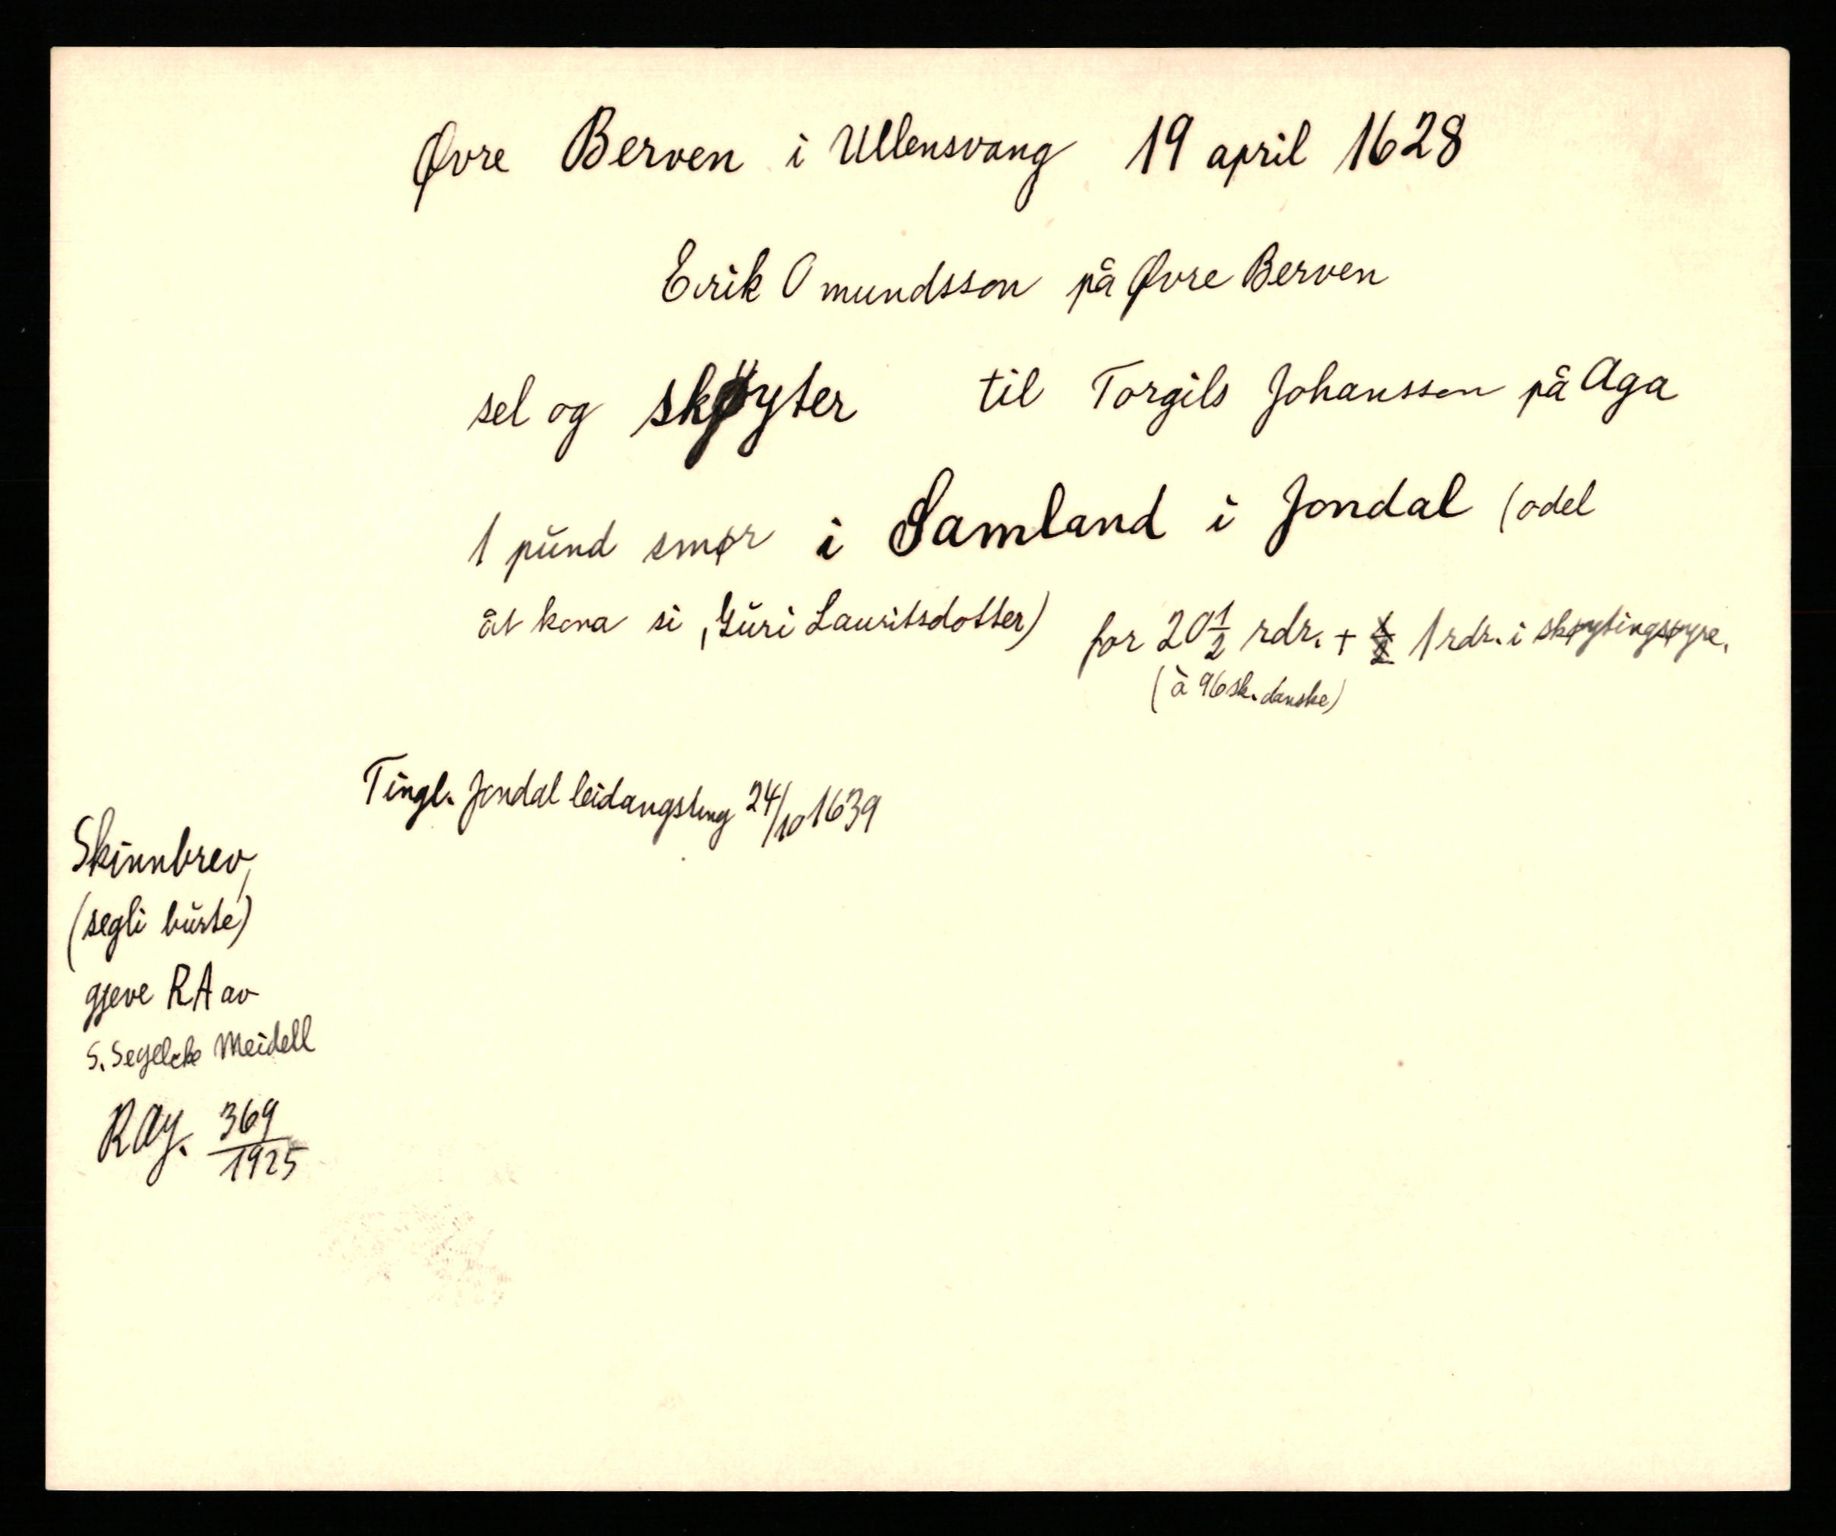 Øvre Berven i Ullensvang 19 april 1628
Erik Omundsson på Øvre Berven
sel og skøyter til Torgils Johansson på Aga
1 pund smør i Samland i Jondal (odel
åt kona si, Guri Lauritsdotter) for 20 1/2 rdr. + 1 rdr. i skøytingsøyre.
(à 96 sk. danske)
Tingl. Jondal leidangsting 24/10 1639
Skinnbrev,
(segli burte)
gjeve RA av
S. Segelcke Meidell
RAJ. 369/1925